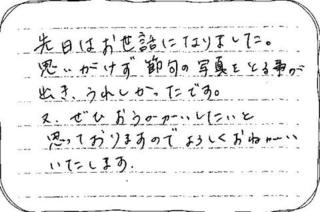 先日はお世話になりました。
思いがけず節句の写真をとる事が
出き、うれしかったです。
又、ぜひおうかがいしたいと
思っておりますのでよろしくおねがい
いたします.